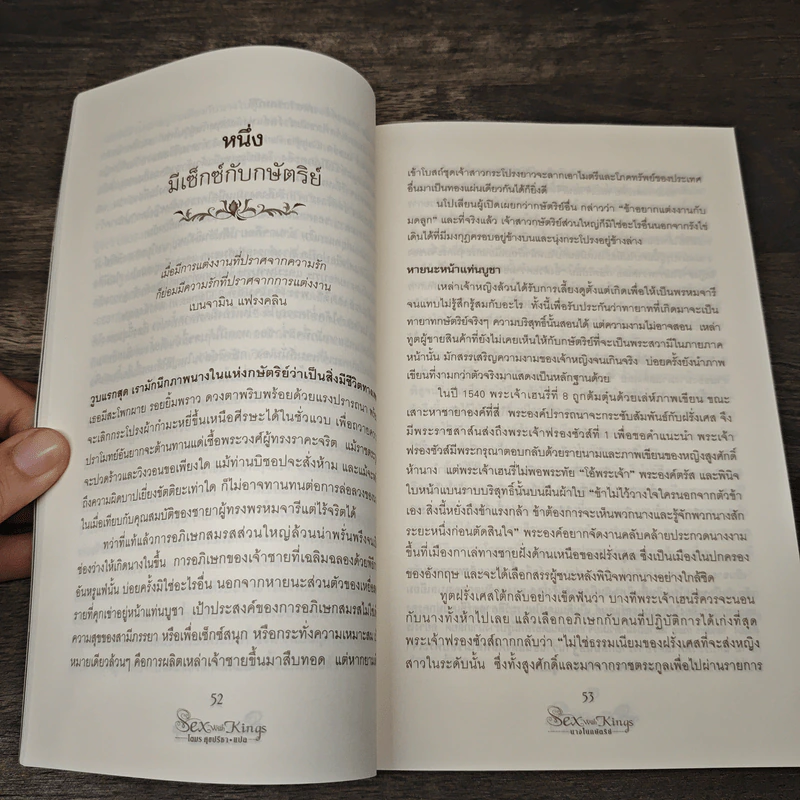 หนึ่ง
มีเซ็กซ์กับกษัตริย์
เมื่อมีการแต่งงานที่ปราศจากความรัก
ก็ย่อมมีความรักที่ปราศจากการแต่งงาน
เบนจามิน แฟรงคลิน
วูบแรกสุด เรามักนึกภาพนางในแห่งกษัตริย์ว่าเป็นสิ่งมีชีวิต
เธอมีสะโพกผาย รอยยิ้มพราว ดวงตาพริบพร้อยด้วยแรงปรารถนา
จะเลิกกระโปรงผ้ากำมะหยี่ขึ้นเหนือศีรษะได้ในชั่วแวบ เพื่อถวาย
ปราโมทย์อันยากจะต้านทานแด่เชื้อพระวงศ์ผู้ทรงราคะจริต แม้ราช
จะปวดร้าวและวิงวอนขอเพียงใด แม้ท่านบิชอปจะสั่งห้าม และแม้
ถึงความผิดบาปเยี่ยงขัตติยะเท่าใด ก็ไม่อาจทานทนต่อการล่อลวง
ในเมื่อเทียบกับคุณสมบัติของชายาผู้ทรงพรหมจารีแต่ไร้จริตได้
ทว่าที่แท้แล้วการอภิเษกสมรสส่วนใหญ่ล้วนน่าพรั่นพรึง
ช่องว่างให้เกิดนางในขึ้น การอภิเษกของเจ้าชายที่เฉลิมฉลองด้วย
อันหรูแฟ่นั้น บ่อยครั้งมิใช่อะไรอื่น นอกจากหายนะส่วนตัวของ
รายที่คุกเข่าอยู่หน้าแท่นบูชา เป้าประสงค์ของการอภิเษกสมรสไม่ใช่
ความสุขของสามีภรรยา หรือเพื่อเซ็กซ์สนุก หรือกระทั่งความเหมาะสม
หมายเดียวล้วนๆ คือการผลิตเหล่าเจ้าชายขึ้นมาสืบทอด แต่หาก
52
Sex With Kings
โตมร ศุขปรีชา • แปล
เข้าโบสถ์ชุดเจ้าสาวกระโปรงยาวจะลากเอาไมตรีและโภคทรัพย์ของประเทศ
อื่นมาเป็นทองแผ่นเดียวกันได้ก็ยิ่งดี
นโปเลียนผู้เปิดเผยกว่ากษัตริย์อื่น กล่าวว่า “ข้าอยากแต่งงานกับ
มดลูก” และที่จริงแล้ว เจ้าสาวกษัตริย์ส่วนใหญ่ก็มิใช่อะไรอื่นนอกจากรังไข่
เดินได้ที่มีมงกุฎครอบอยู่ข้างบนและนุ่งกระโปรงอยู่ข้างล่าง
หายนะหน้าแท่นบูชา
เหล่าเจ้าหญิงล้วนได้รับการเลี้ยงดูตั้งแต่เกิดเพื่อให้เป็นพรหมจารี
จนแทบไม่รู้สึกรู้สมกับอะไร ทั้งนี้เพื่อรับประกันว่าทายาทที่เกิดมาจะเป็น
ทายาทกษัตริย์จริงๆ ความบริสุทธิ์นั้นสอนได้ แต่ความงามไม่อาจสอน เหล่า
ทูตผู้ขายสินค้าที่ยังไม่เคยเห็นให้กับกษัตริย์ที่จะเป็นพระสวามีในภายภาค
หน้านั้น มักสรรเสริญความงามของเจ้าหญิงจนเกินจริง บ่อยครั้งยังนำภาพ
เขียนที่งามกว่าตัวจริงมาแสดงเป็นหลักฐานด้วย
ในปี 1540 พระเจ้าเฮนรี่ที่ 8 ถูกต้มตุ๋นด้วยเล่ห์ภาพเขียน ขณะ
เสาะหาชายาองค์ที่สี่ พระองค์ปรารถนาจะกระชับสัมพันธ์กับฝรั่งเศส จึง
มีพระราชสาส์นส่งถึงพระเจ้าฟรองซัวส์ที่ 1 เพื่อขอคำแนะนำ พระเจ้า
ฟรองซัวส์มีพระกรุณาตอบกลับด้วยรายนามและภาพเขียนของหญิงสูงศักดิ์
ห้านาง แต่พระเจ้าเฮนรี่ไม่พอพระทัย “โอ้พระเจ้า” พระองค์ตรัส และพินิจ
ใบหน้าแบนราบบริสุทธิ์นั้นบนผืนผ้าใบ “ข้าไม่ไว้วางใจใครนอกจากตัวข้า
เอง สิ่งนี้หยั่งถึงข้าแรงกล้า ข้าต้องการจะเห็นพวกนางและรู้จักพวกนางสัก
ระยะหนึ่งก่อนตัดสินใจ” พระองค์อยากจัดงานคล้ายคล้ายประกวดนางงาม
ขึ้นที่เมืองกาเล่ทางชายฝั่งด้านเหนือของฝรั่งเศส ซึ่งเป็นเมืองในปกครอง
ของอังกฤษ และจะได้เลือกสรรผู้ชนะหลังพินิจพวกนางอย่างใกล้ชิด
ทูตฝรั่งเศสโต้กลับอย่างเชิดฟันว่า บางทีพระเจ้าเฮนรี่ควรจะนอน
กับนางทั้งห้าไปเลย แล้วเลือกอภิเษกกับคนที่ปฏิบัติการได้เก่งที่สุด
พระเจ้าฟรองซัวส์ถากกลับว่า “ไม่ใช่ธรรมเนียมของฝรั่งเศสที่จะส่งหญิง
สาวในระดับนั้น ซึ่งทั้งสูงศักดิ์และมาจากราชตระกูลเพื่อไปผ่านรายการ
53
Sex With Kings
นางในกษัตริย์